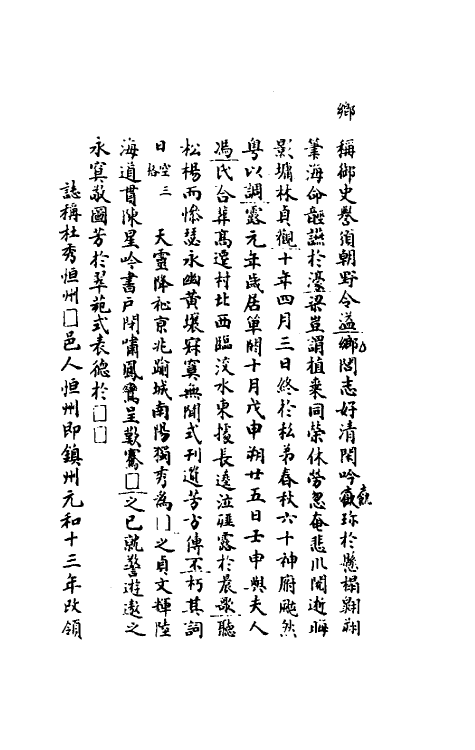 鄉
稱御史譽須朝野令溢鄉閭志好清閑吟翫珎於懸榻翱翔
筆海命觝讌於濠梁豈謂植来同榮休勞忽奄悲川閱逝晦
影墉林貞觀十年四月三日終於私弟春秋六十神府颷然
粤以調露元年歲居單閼十月戊申朔廿五日壬申與夫人
馮氏合葬髙遷村北西臨沒水東據長遶泣薤露於晨歌聽
松楊而慘瑟永幽黄壤寂寞無聞式刊遺芳方傳不朽其詞
曰 空三格 天靈降祉京兆踰城南陽獨秀為□之貞文輝陸
海道貫陳星吟書戶閉嘯鳳鸞呈歎騫□之已就警遊遨之
永寞敬圖芳於翠苑式表德於□□
誌稱杜秀恒州□邑人恒州即鎮州元和十三年改領